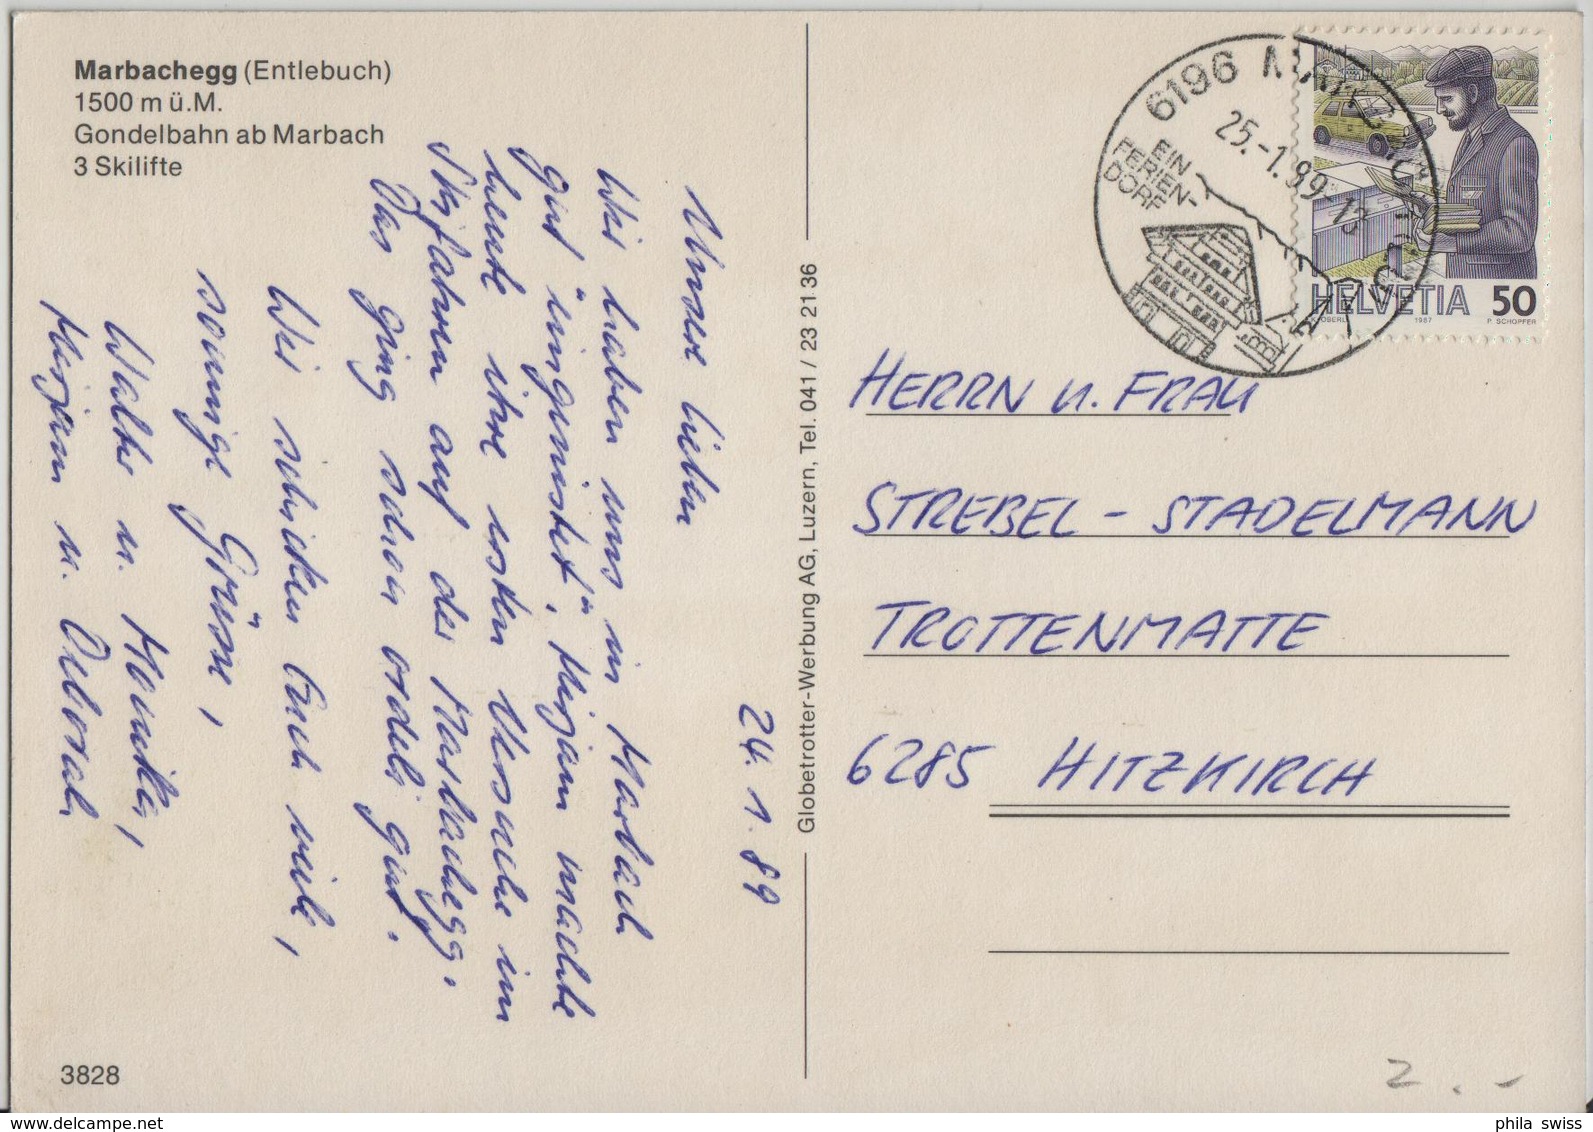 Marbachegg (Entlebuch)
1500 m ü.M.
Gondelbahn ab Marbach
3 Skilifte
24. 1. 89
Unsere lieben
Wir haben uns in Marbach
gut "eingenistet". Mirjam machte
heute ihre ersten Versuche im
Skifahren auf der Marbachegg.
Das ging schon ordeli gut.
Wir schicken Euch viele,
sonnige Grüsse,
Walter u. Monika,
Mirjam u. Deborah
3828
Globetrotter-Werbung AG, Luzern, Tel. 041 / 23 21 36
6196 MARBACH
25.-1.89-13
EIN
FERIEN-
DORF
HELVETIA 50
K. OBERLI 1987 P. SCHOPFER
HERRN u. FRAU
STREBEL - STADELMANN
TROTTENMATTE
6285 HITZKIRCH
2.-
phila swiss